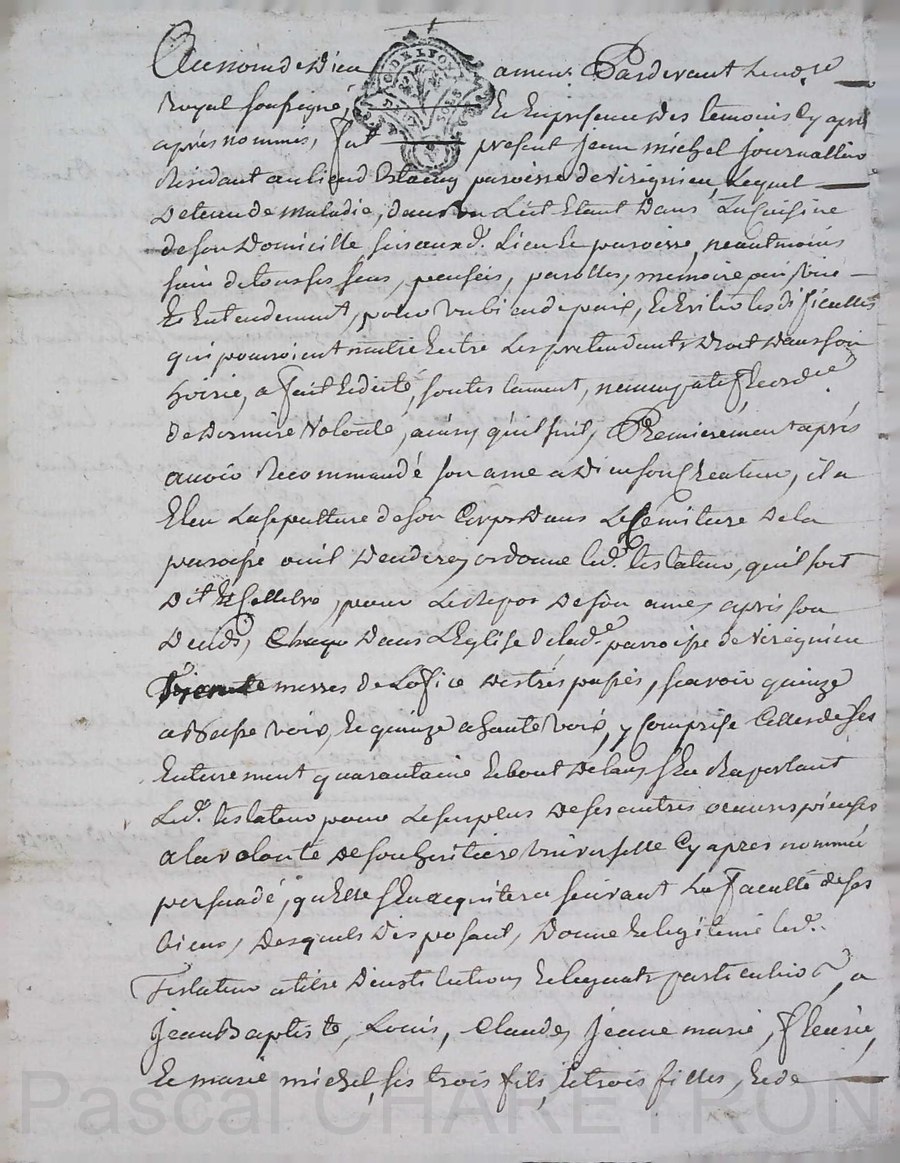 Au nom de Dieu amen. Pardevant le no.re
Royal soussigné, et en presence des temoins cy apres
après nommés, fut present jean michel journallier
Residant au lieu paroisse de virignieu, Lequel
detenu de maladie, dans un Lict Etant dans La Cuisine
de son Domicille, sis auxd. Lieu et paroisse, neantmoins
sain de tous ses sens, pensées, parolles, memoire,
et Entendement, pour et Eviter les dificultés
qui pourroient naitre Entre Les pretendants Droit Dans son
hoirie, a fait et dicté, son testament, nuncupatif
de Derniere Volonté, ainsy qu'il suit, Premierement après
avoir Recommandé son ame a Dieu son Createur, il a
Eleu La sepulture de son Corps Dans Le Cemitiere De la
paroisse ou il Decedera, ordonne led. testateur, qu'il soit
Dit Et Cellebré, pour Le Repos De son ame, après son
Decés, Dans L'Eglise de lad.e parroisse de virignieu
Trente messes de L'ofice Des trés passés, scavoir quinze
a Basse voix, et quinze a haute voix, y Comprise Celles de ses
Enterrement quarantaine et bout De lans s'En Raportant
Led. testateur pour Le surplus De ses autres oeuvres pieuses
a la volonté De son heritiere universelle Cy après nommée
persuadé, qu'Elle s'En acquitera suivant La faculté de ses
biens, Desquels Disposant, Donne et legue led.
Testateur a titre D'institution Et leguats particuliers, a
jean Baptiste, Louis, Claude, jeanne marie, fleurie,
et marie michel, ses trois fils, et trois filles, et de
Pascal CHAREYRON